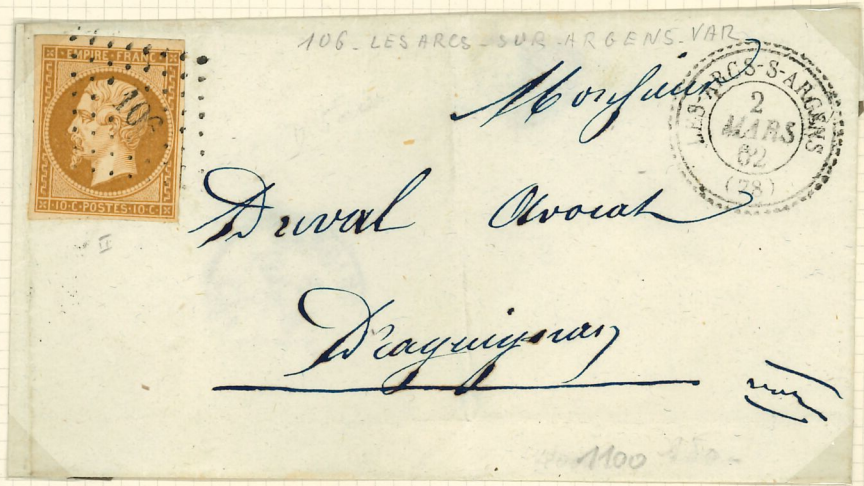 106 - LES ARCS - SUR - ARGENS - VAR
EMPIRE FRANC
106
10 · C · POSTES · 10 · C
II
LES-ARCS-S-ARGENS
2
MARS
62
(78)
Monsieur
Duval Avocat
Draguignan
var
1100